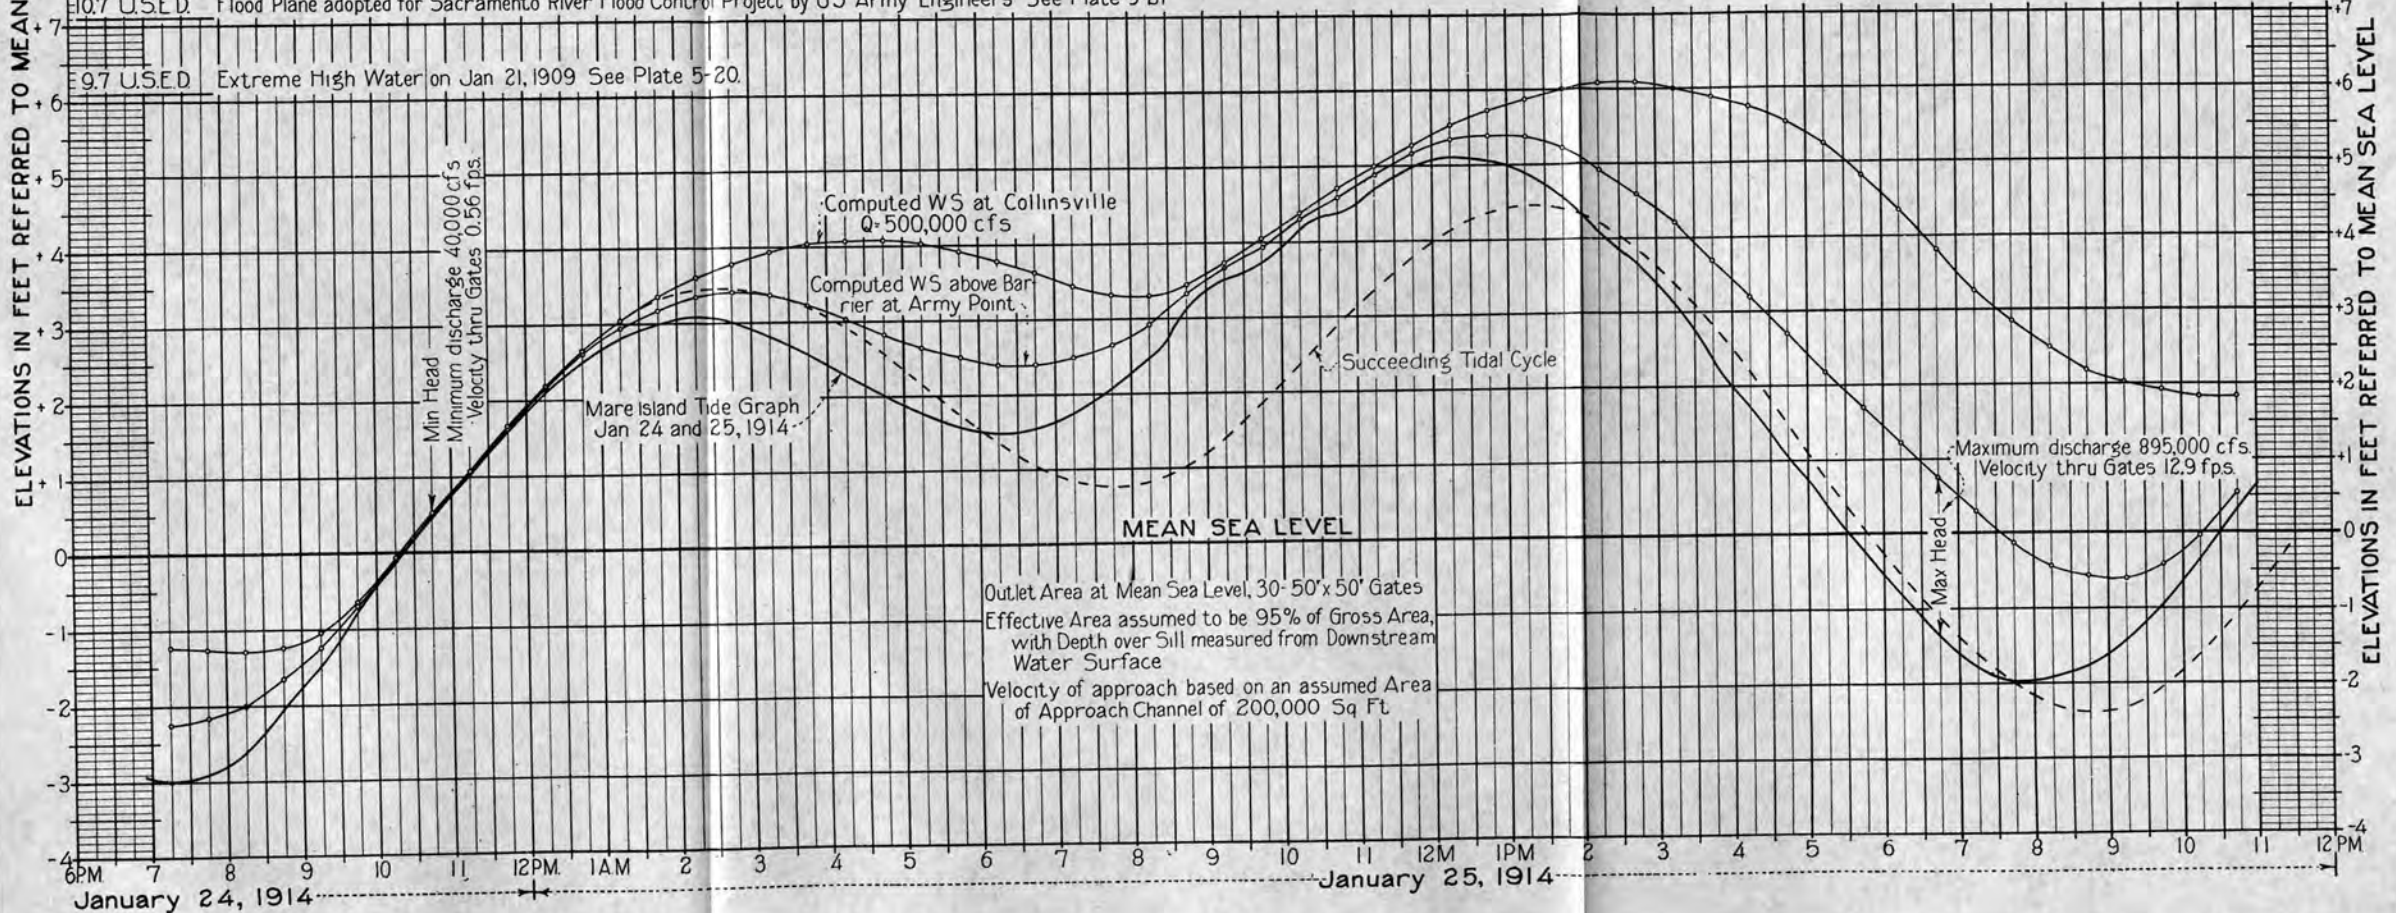 El 10.7 U.S.E.D. Flood Plane adopted for Sacramento River Flood Control Project by US Army Engineers See Plate
El 9.7 U.S.E.D. Extreme High Water on Jan 21, 1909 See Plate 5-20.
ELEVATIONS IN FEET REFERRED TO MEAN
+7
+6
+5
+4
+3
+2
+1
0
-1
-2
-3
-4
Min Head
Minimum discharge 40,000 cfs
Velocity thru Gates 0.56 fps.
Computed WS at Collinsville
Q=500,000 cfs
Computed WS above Bar-
rier at Army Point
Mare Island Tide Graph
Jan 24 and 25, 1914
Succeeding Tidal Cycle
Maximum discharge 895,000 cfs.
Velocity thru Gates 12.9 fps.
Max Head
MEAN SEA LEVEL
Outlet Area at Mean Sea Level, 30-50'x 50' Gates
Effective Area assumed to be 95% of Gross Area,
with Depth over Sill measured from Downstream
Water Surface
Velocity of approach based on an assumed Area
of Approach Channel of 200,000 Sq Ft
+7
+6
+5
+4
+3
+2
+1
0
-1
-2
-3
-4
ELEVATIONS IN FEET REFERRED TO MEAN SEA LEVEL
6PM 7 8 9 10 11 12PM. 1A.M 2 3 4 5 6 7 8 9 10 11 12M 1PM 2 3 4 5 6 7 8 9 10 11 12PM
January 24, 1914 January 25, 1914